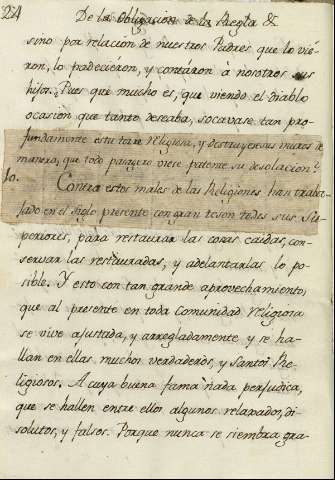 224
De la Obligacion de la Regla &
sino por relacion de nuestros Padres que lo vié-
ron, lo padeciéron, y contáron à nosotros sus
hijos. Pues que mucho es, que viendo el diablo
ocasion que tanto deseaba, socavase tan pro-
fundamente esta torre Religiosa, y destruyese sus muros de
manera, que todo pasagero viese patente su desolacion?
10. Contra estos males de las Religiones han traba-
jado en el siglo presente con gran teson todos sus Su-
periores, para restaurar las cosas caidas, con-
servar las restauradas, y adelantarlas lo po-
sible. Y esto con tan grande aprovechamiento,
que al presente en toda Comunidad Religiosa
se vive ajustada, y arregladamente y se ha-
llan en ellas muchos verdaderos, y Santos Re-
ligiosos. A cuya buena fama nada perjudica,
que se hallen entre ellos algunos relaxados, di-
solutos, y falsos. Porque nunca se siembra gra-